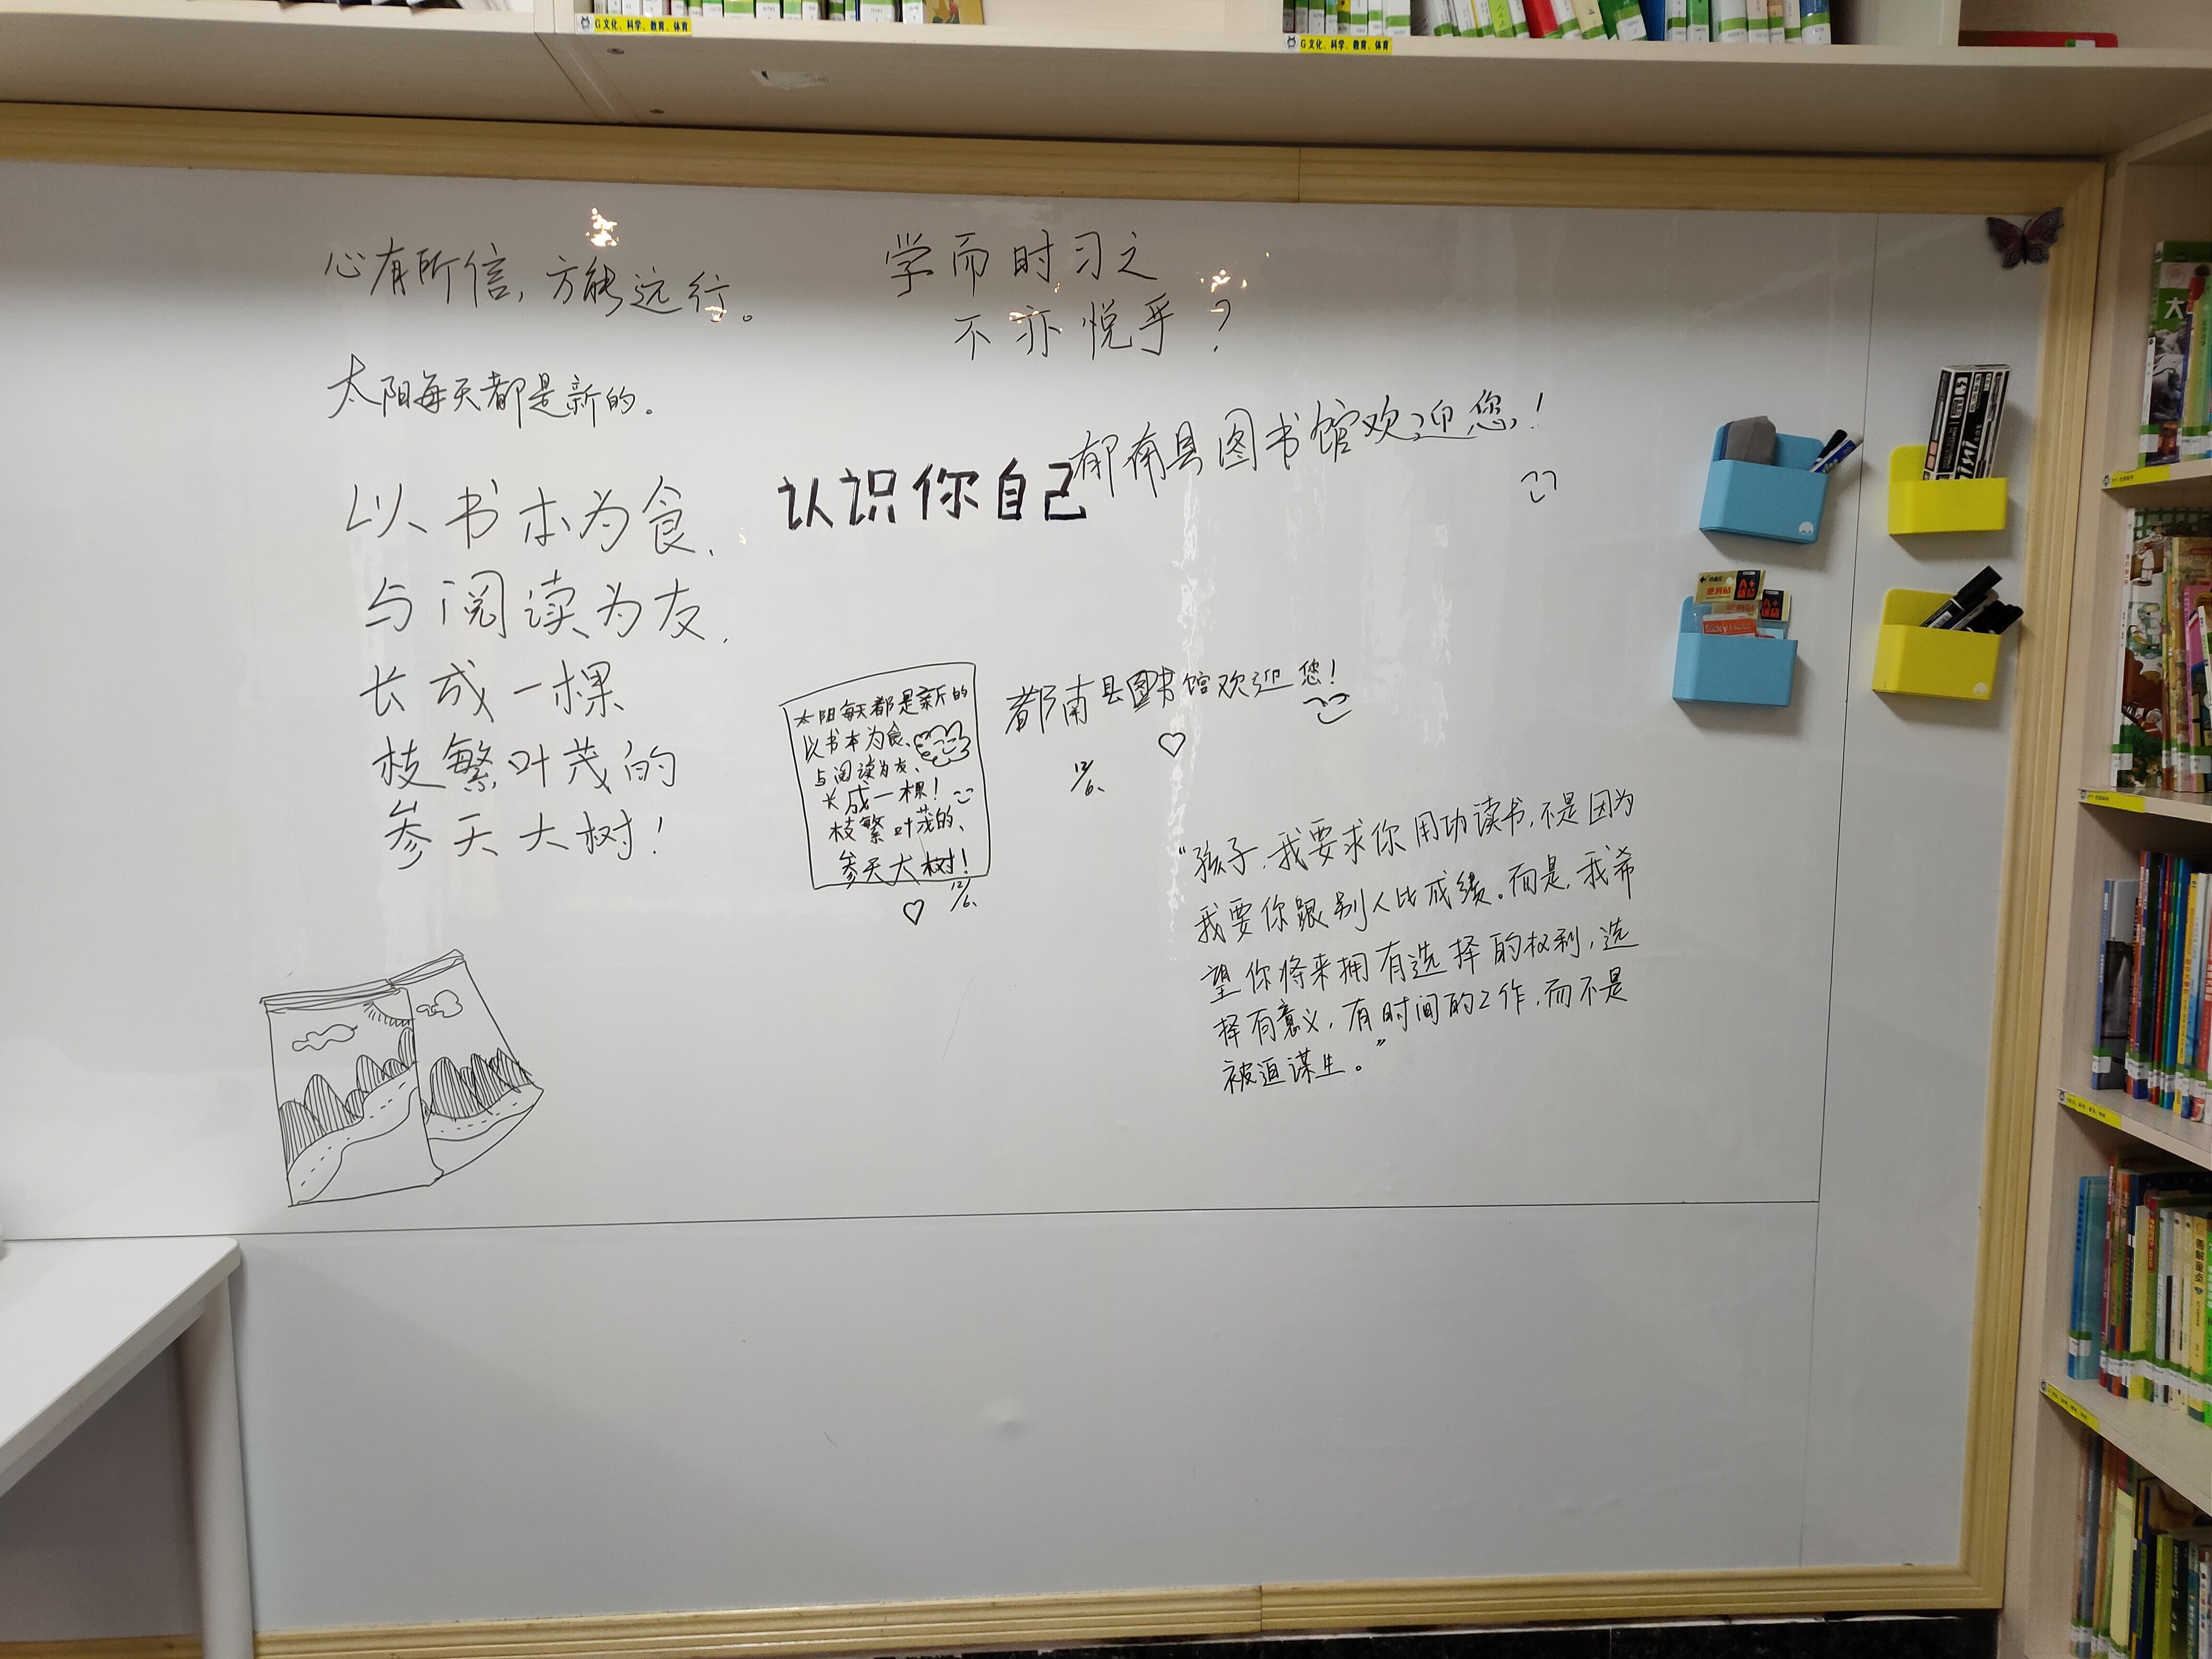 G 文化、科学、教育、体育
G 文化、科学、教育、体育
心有所信,方能远行。
学而时习之
不亦悦乎?
太阳每天都是新的。
郁南县图书馆欢迎您!
认识你自己
以书本为食、
与阅读为友、
长成一棵
枝繁叶茂的
参天大树!
太阳每天都是新的
以书本为食、
与阅读为友、
长成一棵!
枝繁叶茂的、
参天大树!
12/6、
都南县图书馆欢迎您!
12/6、
“孩子,我要求你用功读书,不是因为
我要你跟别人比成绩。而是,我希
望你将来拥有选择的权利,选
择有意义,有时间的工作,而不是
被迫谋生。”
便利贴
A+
A+
Sticky Notes
大